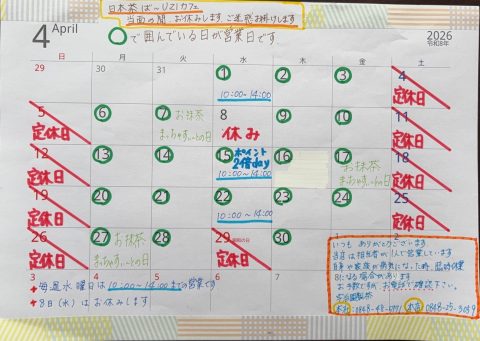 日本茶ば～UZIカフェ
当面の間、お休みします ご迷惑お掛けします
4 April
○で囲んでいる日が営業日です。
2026
令和8年
日 月 火 水 木 金 土
29 30 31 1 2 3 4
10:00-14:00
定休日
5 6 7 8 9 10 11
定休日 お抹茶 休み 定休日
まっちゃすぃーとの日
12 13 14 15 16 17 18
定休日 ポイント お抹茶 定休日
2倍day まっちゃすぃーとの日
10:00-14:00
19 20 21 22 23 24 25
定休日 定休日
10:00-14:00
26 27 28 29 30 1 2
定休日 お抹茶
まっちゃすぃーとの日
3 4 5
毎週水曜日は10:00-14:00までの営業です
8日(水)はお休みします
いつも ありがとうございます
当店は担当者が1人で営業しています
自身や家族が病気になった時、臨時休業
になる場合があります
お手数ですが お電話で確認下さい。
本社
お店